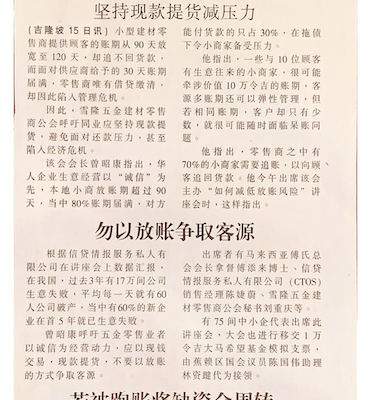 坚持现款提货减压力
(吉隆坡15日讯)小型建材零
售商提供顾客的账期从90天放
宽至120天,却追不回货款,
而面对供应商给予的30天账期
届满,零售商唯有借贷缴清,
却因此陷入管理危机。
因此,雪隆五金建材零售
商公会呼吁同业应坚持现款提
货,避免面对还款压力,甚至
陷入经济危机。
该会会长曾昭康指出,华
人企业生意经营以“诚信”为
先,本地小商放账期超过90
天,当中80%账期届满,对方
能付货款的只占30%,在拖债
下令小商家备受压力。
他指出,一些与10位顾客
有生意往来的小商家,很可能
牵涉价值10万令吉的账期,客
源多账期还可以弹性管理,但
若相同账期,客户却只有少
数,就很可能随时面临呆账问
题。
他指出,零售商之中有
70%的小商家需要追账,以向顾
客追回货款。他今午出席该会
主办“如何减低放账风险”讲
座会时,这样指出。
勿以放账争取客源
根据信贷情报服务私人有
限公司在讲座会上数据汇报,
在我国,过去3年有17万间公司
生意失败,平均每一天就有60
人公司破产,当中有60%的新企
业在首5年就已生意失败。
曾昭康呼吁五金零售业者
以诚信为经营动力,应以现钱
交易,现款提货,不要以放账
的方式争取客源。
出席者有马来西亚傅氏总
会会长拿督傅添来博士、信贷
情报服务私人有限公司(CTOS)
销售经理陈婕蔚、雪隆五金建
材零售商公会秘书刘重庆等。
有75间中小企代表出席此
讲座会,大会也进行移交1万
令吉大马希望基金模拟支票,
由蕉赖区国会议员陈国伟助理
林资健代为接领。